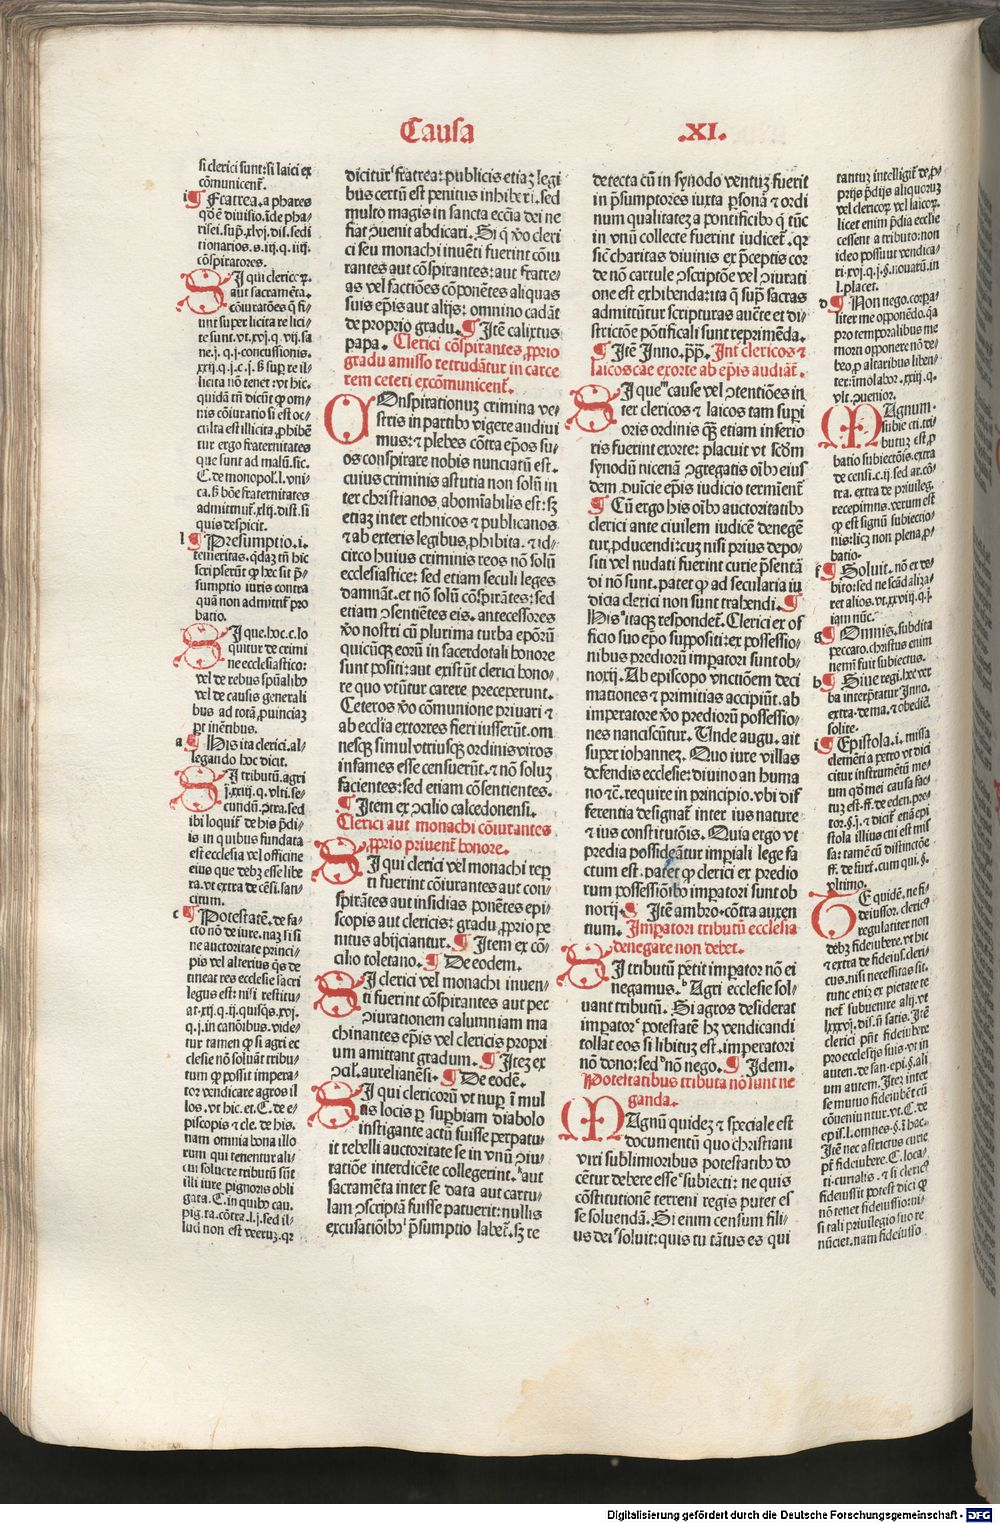 Causa
.XI.
si clerici sunt: si laici ex
cōmunicent᷑.
i ¶ Fratrea. a phares
qd̄ ē diuisio. īde pha⸗
risei. sup̄. xlvj. dis. sedi
tionarios. s. iij. q. iiij.
cōspiratores.
SI qui clericoꝝ.
aut sacramēta.
cōiuratōes q̄ fi⸗
unt super licita re lici⸗
te sunt. vt. xvj. q. vij. sa
ne. j. q. j. concussionis.
xxij. q. j. c. j. ß sup re il⸗
licita nō tenet: vt hic.
quidā tn̄ dicūt ꝙ om⸗
nis cōiuratio si est oc⸗
culta est illicita. ꝓhibē
tur ergo fraternitates
que sunt ad malū. sic.
C. de monopol. l. vni⸗
ca. ß bōe fraternitates
admittunt᷑. xlij. dist. si
quis despicit.
l ¶ Presumptio. i.
temeritas. qdaꝫ tn̄ hic
scripserūt ꝙ hec sit p̄⸗
sumptio iuris contra
quā non admittit᷑ pro
batio.
SI que. hoc. c. lo
quitur de crimi
ne ecclesiastico:
vel de rebus spūalibꝰ
vel de causis generali
bus ad totā ꝓuinciaꝫ
ꝑtinētibus.
a ¶ His ita clerici. al⸗
legando hoc dicit.
SI tributū. agri
j. xxiij. q. vlti. se⸗
cundū. ꝯtra. sed
ibi loquit᷑ de his p̄di⸗
is in quibus fundata
est ecclesia vel officine
eiuꝰ que debꝫ esse libe
ra. vt extra de cēsi. san⸗
citum.
c ¶ Potestatē. de fa⸗
cto nō de iure. naꝫ si si
ne auctoritate princi⸗
pis vel alterius q̄s de
tineat res ecclesie sacri
legus est: nisi restitu⸗
at. xij. q. ij. quisq̄s. xvj.
q. j. in canōibus. vide⸗
tur tamen ꝙ si agri ec
clesie nō soluāt tribu⸗
tum ꝙ possit impera⸗
tor vendicare agros il
los. vt hic. et. C. de e⸗
piscopis ⁊ cle. de his.
nam omnia bona illo
rum qui tenentur ali⸗
cui soluere tributū sūt
illi iure pignoris obli
gata. C. in quibꝰ cau.
pig. ta. cōtra. l. j. sed il⸗
lud non est veruꝫ. qꝛ
dicitur fratrea: publicis etiaꝫ legi
bus certū est penitus inhiberi. sed
multo magis in sancta ecclīa dei ne
fiat ꝓuenit abdicari. Si q̄ v̄o cleri
ci seu monachi inuēti fuerint cōiu
rantes aut cōspirantes: aut fratre⸗
as vel factiōes cōponētes aliquas
suis ep̄is aut alijs: omnino cadāt
de proprio gradu. ¶ Itē calixtus
papa. Clerici cōspirantes, ꝓprio
gradu amisso retrudātur in carce
rem ceteri excōmunicent᷑.
COnspirationuꝫ crimina ve⸗
stris in partibꝰ vigere audiui
mus: ⁊ plebes cōtra ep̄os su⸗
os conspirare nobis nunciatū est.
cuius criminis astutia non solū in
ter christianos abomīabilis est: sꝫ
etiaꝫ inter ethnicos ⁊ publicanos
⁊ ab exteris legibus, ꝓhibita. ⁊ id⸗
circo huius criminis reos nō solū
ecclesiastice: sed etiam seculi leges
damnāt. et nō solū cōspirātes: sed
etiam ꝯsentiētes eis. antecessores
v̄o nostri cū plurima turba ep̄orū
quicūqꝫ eorū in sacerdotali honore
sunt positi: aut existūt clerici hono⸗
re quo vtūtur carere preceperunt.
Ceteros v̄o cōmunione priuari ⁊
ab eccl̄ia extorres fieri iusserūt. om
nesqꝫ simul vtriusqꝫ ordinis viros
infames esse censuerūt. ⁊ nō soluꝫ
facientes: sed etiam cōsentientes.
¶ Item ex ꝯcilio calcedonensi.
Clerici aut monachi cōiurantes
ꝓprio priuent᷑ honore.
SI qui clerici vel monachi reꝑ
ti fuerint cōiurantes aut con⸗
spirātes aut insidias ponētes epi⸗
scopis aut clericis: gradu ꝓprio pe
nitus abijciantur. ¶ Item ex cō⸗
cilio toletano. ¶ De eodem.
SI clerici vel monachi inuen⸗
ti fuerint cōspirantes aut per
ꝯiurationem calumniam ma
chinantes ep̄is vel clericis propri
um amittant gradum. ¶ Iteꝫ ex
ꝯcil. aurelianēsi. ¶ De eodē.
SI qui clericorū vt nuꝑ ī mul
tis locis ꝑ supbiam diabolo
instigante actū fuisse perpatu⸗
it rebelli auctoritate se in vnū ꝯiu⸗
ratiōe interdicēte collegerint. aut
sacramēta inter se data aut cartu⸗
lam ꝯscriptā fuisse patuerit: nullis
excusatiōibꝰ p̄sumptio labet᷑. sꝫ re
detecta cū in synodo ventuꝫ fuerit
in p̄sumptores iuxta ꝑsonā ⁊ ordi
num qualitateꝫ a pontificibꝰ q̄ tūc
in vnū collecte fuerint iudicet᷑. qꝛ
sic̄ charitas diuinis ex p̄ceptis cor
de nō cartule ꝯscriptōe vel ꝯiurati
one est exhibenda: ita q̄ sup̄ sacras
admittūtur scripturas aucte et di⸗
strictōe pōtificali sunt reprimēda.
¶ Itē Inno. pp̄. Int᷑ clericos ⁊
laicos cāe exorte ab ep̄is audiāt᷑.
SI que cause vel ꝯtentiōes in
ter clericos ⁊ laicos tam supi
oris ordinis qꝫ etiam inferio
ris fuerint exorte: placuit vt scdm̄
synodū nicenā ꝯgregatis oībꝰ eius
dem ꝓuīcie ep̄is iudicio termient᷑
¶ Cū ergo his oībꝰ auctoritatibꝰ
clerici ante ciuilem iudicē denegē
tur, ꝓducendi: cuꝫ nisi prius depo⸗
siti vel nudati fuerint curie p̄sentā
di nō sunt. patet ꝙ ad secularia iu
dicia clerici non sunt trahendi. ¶
His itaqꝫ respondet᷑. Clerici ex of
ficio suo ep̄o suppositi: ex possessio⸗
nibus prediorū imꝑatori sunt ob⸗
noxij. Ab episcopo vnctiōem deci
mationes ⁊ primitias accipiūt. ab
imperatore v̄o prediorū possessio⸗
nes nanciscūtur. Unde augu. ait
super iohanneꝫ. Quo iure villas
defendis ecclesie: diuino an huma
no ⁊c̄. require in principio. vbi dif
ferentia designat᷑ inter ius nature
⁊ ius constitutōis. Quia ergo vt
predia possideātur imꝑiali lege fa
ctum est. patet ꝙ clerici ex predio
rum possessiōibꝰ imꝑatori sunt ob
noxij. ¶ Itē ambro. cōtra auxen
tium. Imꝑatori tributū ecclesia
denegare non debet.
SI tributū petit imꝑator nō ei
negamus. b Agri ecclesie sol⸗
uant tributū. Si agros desiderat
impator c potestatē hꝫ vendicandi
tollat eos si libituꝫ est. imperatori
nō dono: sed nō nego. ¶ Idem.
Potestatibus tributa nō sunt ne
ganda.
MAgnū quideꝫ ⁊ speciale est
documētū quo christiani
viri sublimioribus potestatibꝰ do
cētur debere esse subiecti: ne quis
cōstitutionem terreni regis putet es
se soluendā. Si enim censum fili⸗
us dei soluit: quis tu tātus es qui
tantuꝫ intelligit᷑ de, ꝓ⸗
prijs p̄dijs aliquoruꝫ
vel clericoꝝ vel laicoꝝ.
licet enim p̄dia ecclie
cessent a tributo: non
ideo possunt vendica⸗
ri. xvj. q. j. §. nouarū. in
l. placet.
d ¶ Non nego. corpa⸗
liter me opponēdo. qꝛ
pro temporalibus me
morti opponere nō de⸗
beo, ꝓ altaribus liben⸗
ter: īmolabor. xxiij. q.
vlt. ꝯuenior.
MAgnum.
subiecti. tri
butuꝫ est, ꝓ
batio subiectōis. extra
de censi. c. ij. sed ar. cō⸗
tra. extra de priuileg.
recepimus. verum est
ꝙ est signū subiectio⸗
nis: licꝫ non plena, ꝓ⸗
batio.
f ¶ Soluit. nō ex de⸗
bito: sed ne scādaliza⸗
ret alios. vt. xxviij. q. j.
iam nūc.
g ¶ Omnis. subdita
peccato. christus enim
nemī fuit subiectus.
h ¶ Siue regi. hec ver
ba interp̄tatur Inno.
extra. de ma. ⁊ obediē.
solite.
i ¶ Epistola. i. missa
clemēti a petro vt dici
citur instrumētū me⸗
um qd̄ mei causa fac⸗
tuꝫ est. ff. de eden. pre⸗
tor. §. j. ⁊ dicit᷑ etiā epi
stola illius cui est mis
sa: tamē cū distinctōe
ff. de furt. cum qui. §.
vltimo.
TE quidē. ne fi⸗
deiussor. clericꝰ
regulariter non
debꝫ fideiubere. vt hic
⁊ extra de fideius. cleri⸗
cus. nisi necessitas sit.
tunc enim ex pietate te
net᷑ subuenire alij. vt
lxxxvj. dis. nō satis. Itē
clerici pn̄t fideiubere
pro ecclesijs suis. vt in
auten. de san. epi. §. ali
um autem. Iteꝫ inter
se mutuo fideiubēt cū
cōueniuntur. vt. C. de
epis. l. omnes. §. ī hac.
Itē nec astrictus curie
pt̄ fideiubere. C. loca⸗
ti. curialis. ⁊ si clericꝰ
fideiussit potest dici ꝙ
nō tenet fideiussio: ni⸗
si tali priuilegio suo re
nūciet. nam fideiusso
Digitalisierung gefördert durch die Deutsche Forschungsgemeinschaft - DFG